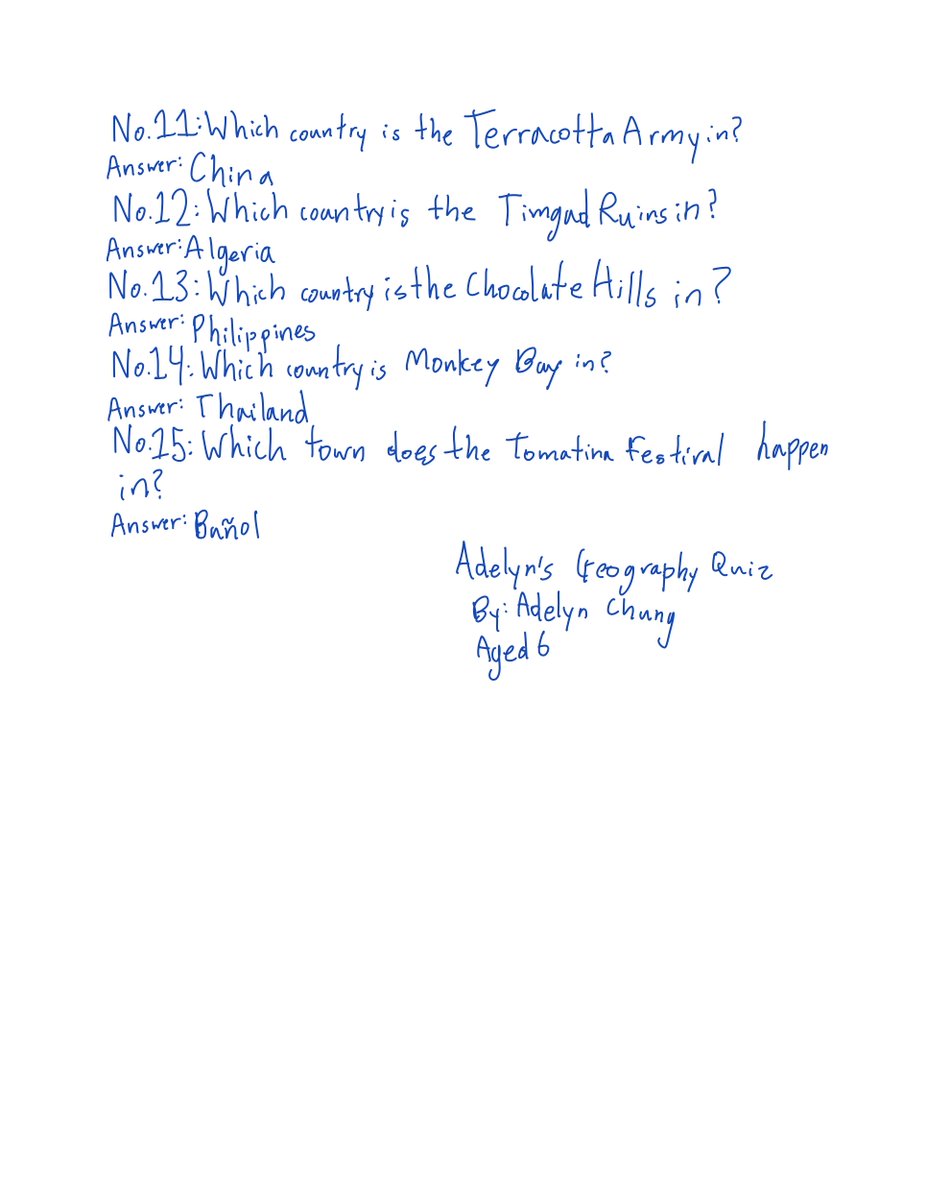 No.11: Which country is the Terracotta Army in?
Answer: China
No.12: Which country is the Timgad Ruins in?
Answer: Algeria
No.13: Which country is the Chocolate Hills in?
Answer: Philippines
No.14: Which country is Monkey Bay in?
Answer: Thailand
No.15: Which town does the Tomatina Festival happen
in?
Answer: Buñol
Adelyn's Geography Quiz
By: Adelyn Chung
Aged 6